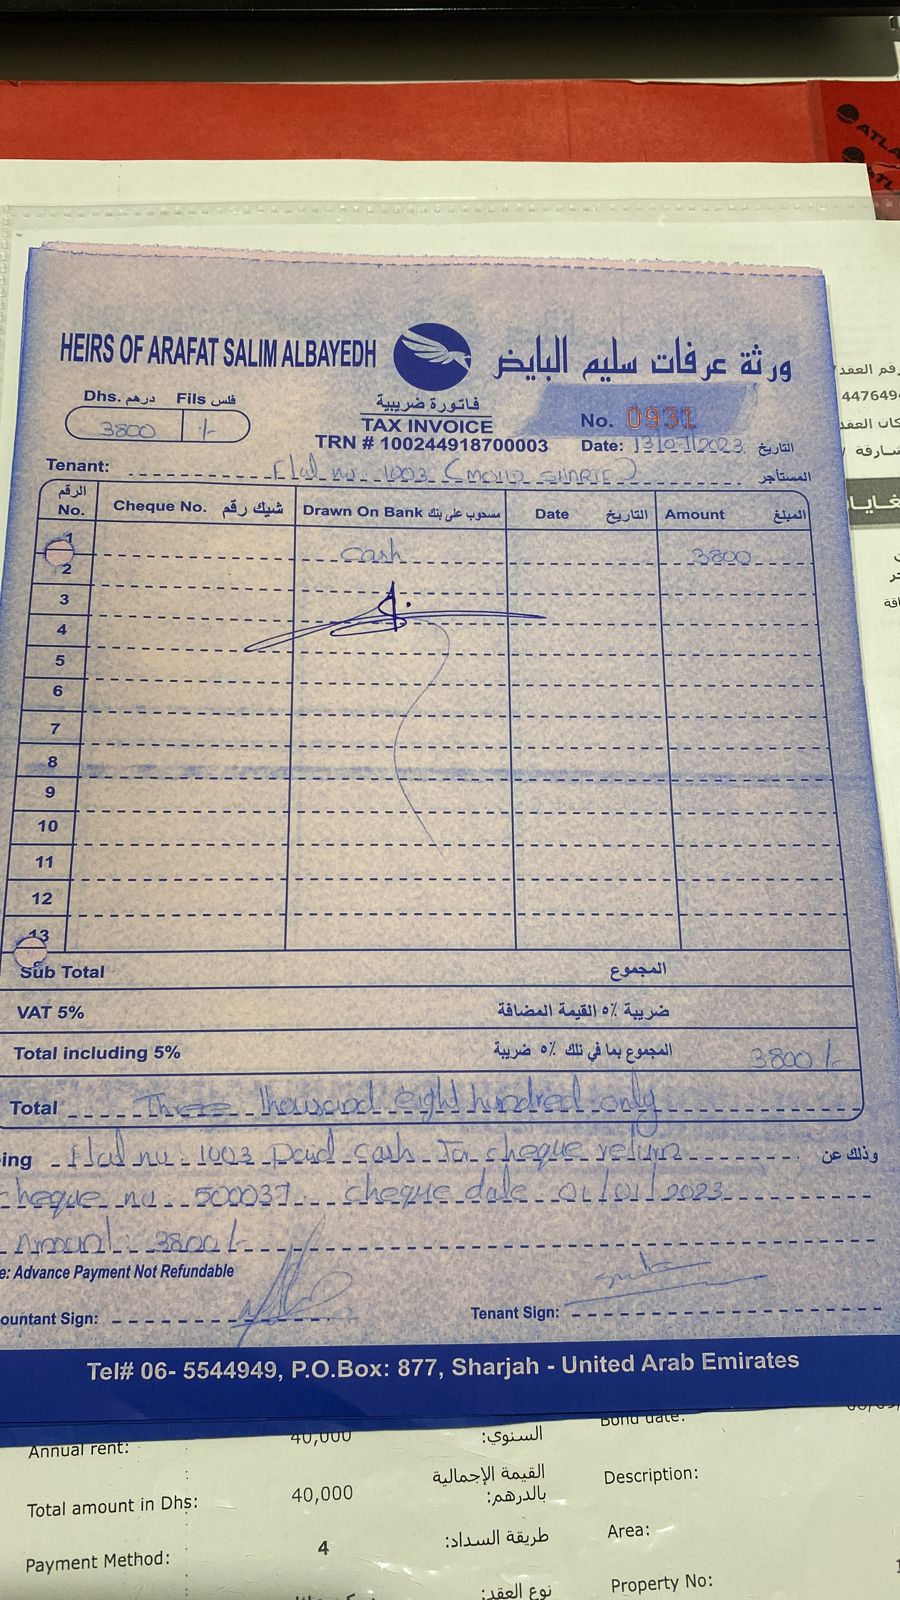 ATLA
ATL
HEIRS OF ARAFAT SALIM ALBAYEDH
ورثة عرفات سليم البايض
Dhs. درهم Fils فلس
3800 /-
فاتورة ضريبية
TAX INVOICE
No. 0931
TRN # 100244918700003
Date: 2023 التاريخ
Tenant: Flat no: 1003 المستأجر
الرقم No. Cheque No. شيك رقم Drawn On Bank مسحوب على بنك Date التاريخ Amount المبلغ
1
cash 3800
2
3
4
5
6
7
8
9
10
11
12
13
Sub Total المجموع
VAT 5% ضريبة ٥٪ القيمة المضافة
Total including 5% المجموع بما في ذلك ٥٪ ضريبة 3800/-
Total Three thousand eight hundred only
ing Flat no: 1003 Paid cash for cheque return وذلك عن
cheque no: 500037 cheque date 01/01/2023
Amount: 3800/-
e: Advance Payment Not Refundable
ountant Sign: Tenant Sign:
Tel# 06- 5544949, P.O.Box: 877, Sharjah - United Arab Emirates
رقم العقد
447649
شارقة
Annual rent: 40,000 السنوي: Bond date:
Total amount in Dhs: 40,000 القيمة الإجمالية بالدرهم: Description:
Payment Method: 4 طريقة السداد: Area:
نوع العقد: Property No: